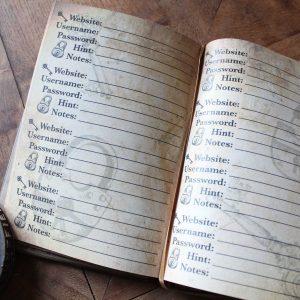 Website:
Username:
Password:
Hint:
Notes:
Website:
Username:
Password:
Hint:
Notes:
Website:
Username:
Password:
Hint:
Notes:
Website:
Username:
Password:
Hint:
Notes:
Website:
Username:
Password:
Hint:
Notes:
Website:
Username:
Password:
Hint:
Notes:
Website:
Username:
Password:
Hint:
Notes:
Website:
Username:
Password:
Hint:
Notes: